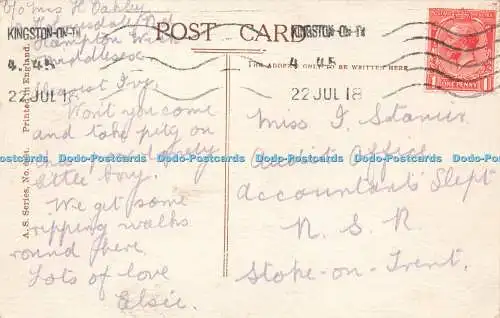 c/o Mrs H Oakley
Hampton Wick
Middlesex
POST CARD
KINGSTON-ON-TH
4. 45
22 JUL 18
KINGSTON-ON-TH
4 45
22 JUL 18
ONE PENNY
THE ADDRESS ONLY TO BE WRITTEN HERE
A. S. Series, No.
Printed in England.
Dearest Ivy.
Won't you come
and take pity on
lonely
little boy.
We get some
ripping walks
round here.
Lots of love
Elsie.
Miss I. Stanier
Audit Office
Accountant's Dept
N. S. R
Stoke-on-Trent.
Dodo-Postcards.com Dodo-Postcards.com Dodo-Postcards.com Dodo-Postcards.com